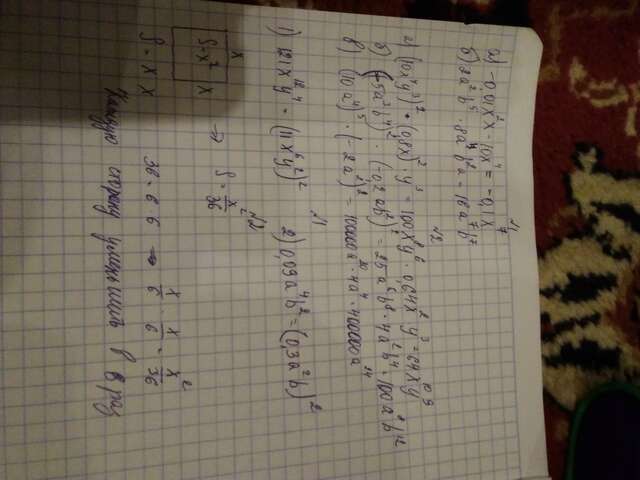 №1
а) -0,01x²x · 10x⁴ = -0,1x⁷
б) 2a²b⁵ · 8a⁴b²a = 16a⁷b⁷
№2
а) (10x⁴y³)² · (0,8x)² · y³ = 100x⁸y⁶ · 0,64x²y³ = 64x¹⁰y⁹
б) (-5a³b⁴)² · (-0,2ab²)² = 25a⁶b⁸ · 4a²b⁴ = 100a⁸b¹²
в) (10a⁴)⁵ · (-2a²)² = 100000a²⁰ · 4a⁴ = 400000a²⁴
№1
1) 121x¹²y⁴ = (11x⁶y²)²  2) 0,09a⁴b² = (0,3a²b)²
№2
x
S = x² x → S = x²/36
S = x · x 36 = 6 · 6 ⇒ x/6 · x/6 = x²/36
Каждую сторону уменьшить в 6 раз